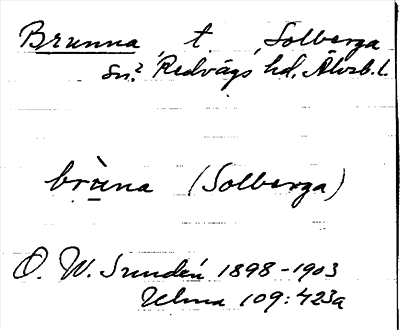 Brunna, t., Solberga
sn? Redvägs hd, Älvsb. l.
brùna (Solberga)
O. W. Sundén 1898-1903
Ulma 109:423a